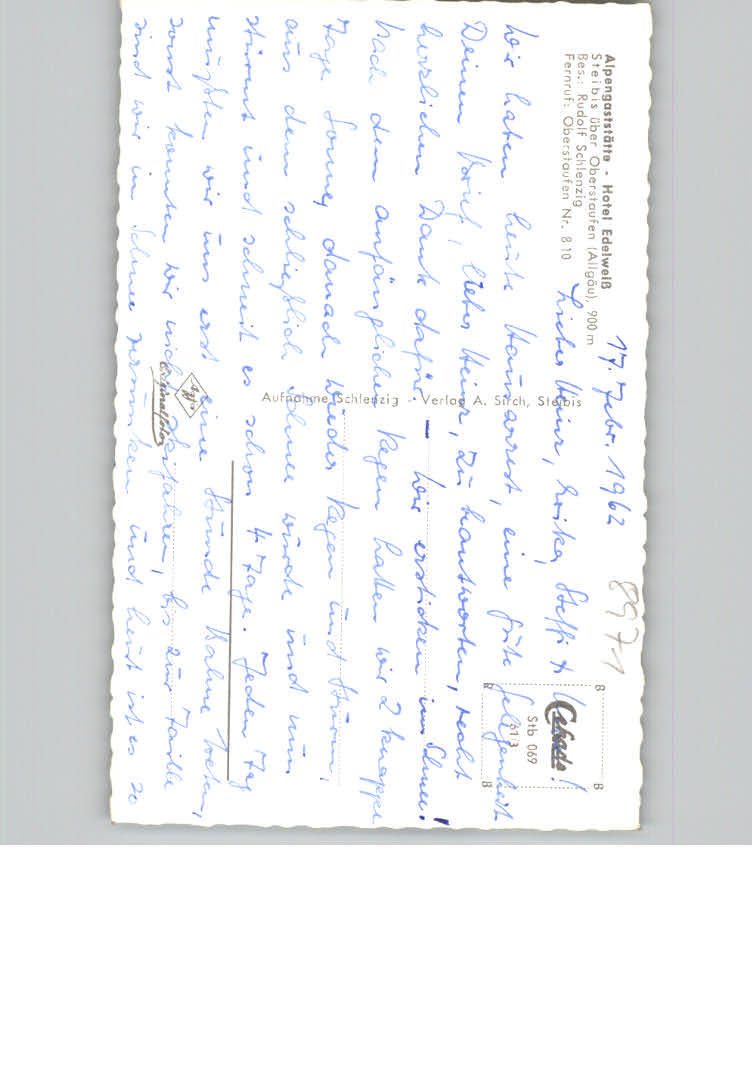 Alpengaststätte - Hotel Edelweiß
Steibis über Oberstaufen (Allgäu), 900 m
Bes.: Rudolf Schlenzig
Fernruf: Oberstaufen Nr. 810
17. Febr. 1962
8971
Cekade
Stb 069
61/3
Lieber Heinz, Erika, Steffi &
Wir haben heute Hausarrest, eine gute Gelegenheit
Deinen Brief, lieber Heinz, zu beantworten, recht
herzlichen Dank dafür. – Wir ersticken im Schnee!
Nach dem anfänglichen Regen hatten wir 2 knappe
Tage Sonne, danach wieder Regen und Sturm,
aus dem schließlich Schnee wurde und nun
stürmt und schneit es schon 4 Tage. Jeden Tag
mußten wir uns erst eine Stunde Bahne treten,
sonst konnten wir nicht abfahren, bis zur Taille
sind wir im Schnee versunken und heut ist es so
Aufnahme Schlenzig - Verlag A. Sirch, Steibis
Agfa
Originalfoto